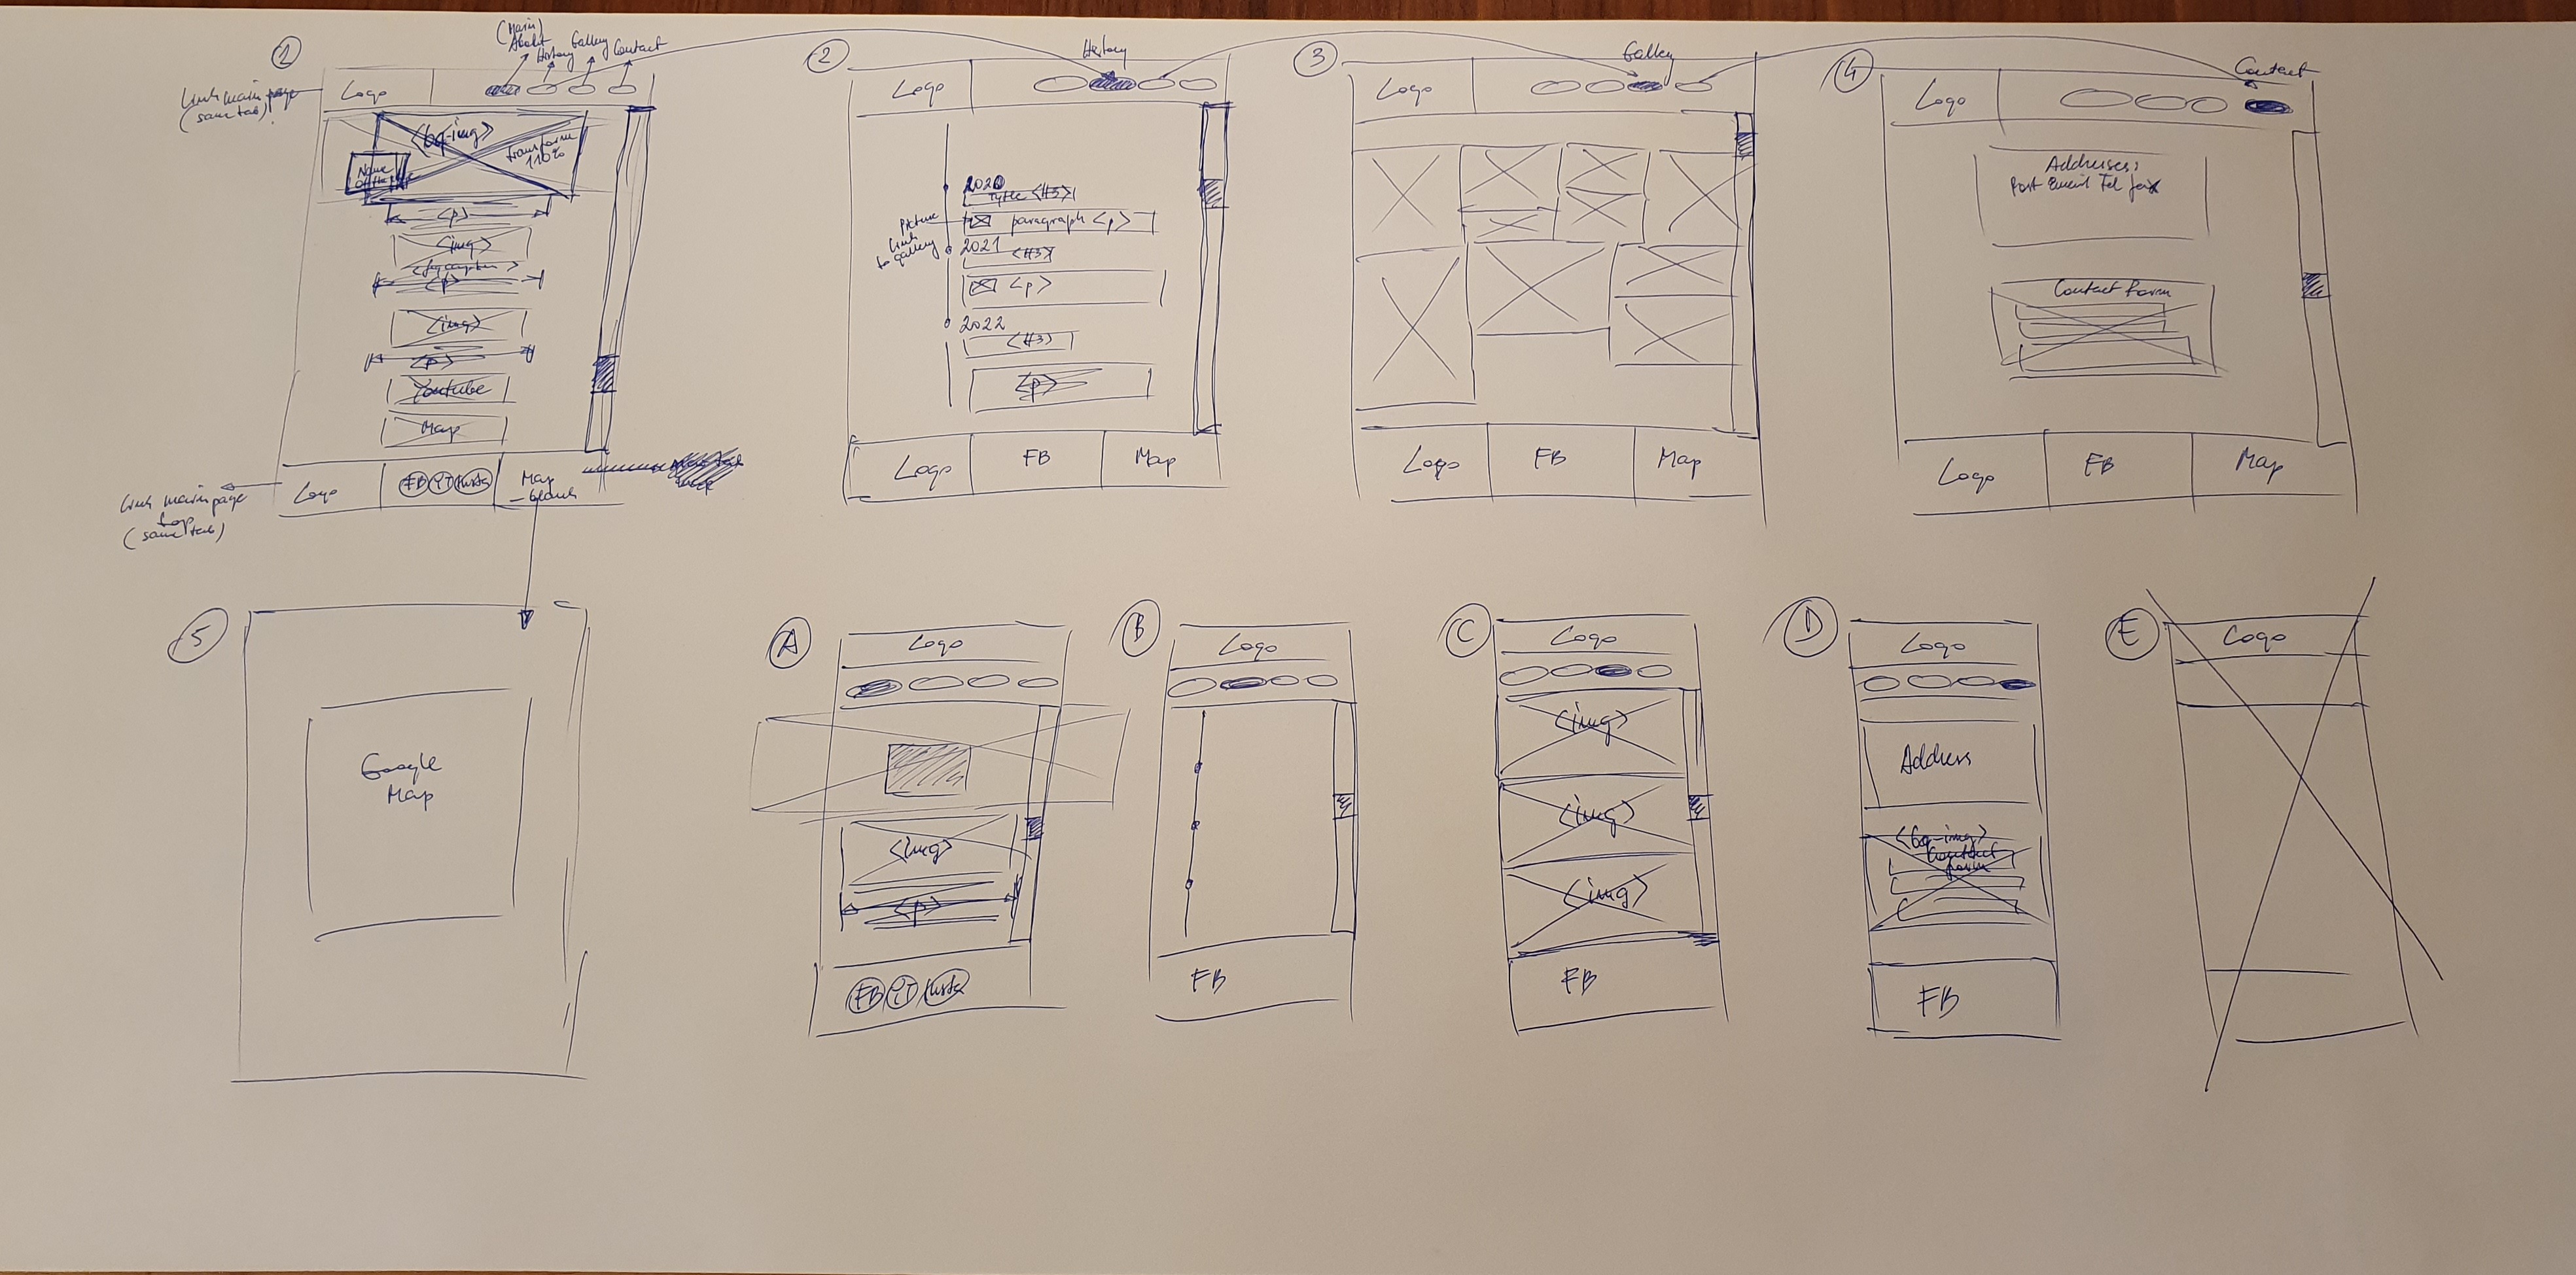 1
(Main)
About
History
Gallery
Contact
Link main page
(same tab)
Logo
<bg-img>
transform
110%
Name
of the
<p>
<img>
<figcaption>
<p>
<img>
<p>
Youtube
Map
Logo
FB YT Insta
Map
Link main page
top
(same tab)
2
History
Logo
2020
<H3>
Picture
Link
to gallery
paragraph <p>
2021
<H3>
<p>
2022
<H3>
<p>
Logo
FB
Map
3
Gallery
Logo
Logo
FB
Map
4
Contact
Logo
Addresses:
Post Email Tel fax
Contact Form
Logo
FB
Map
5
Google
Map
A
Logo
<img>
<p>
FB YT Insta
B
Logo
FB
C
Logo
<img>
<img>
<img>
FB
D
Logo
Address
<bg-img>
Contact
form
FB
E
Logo